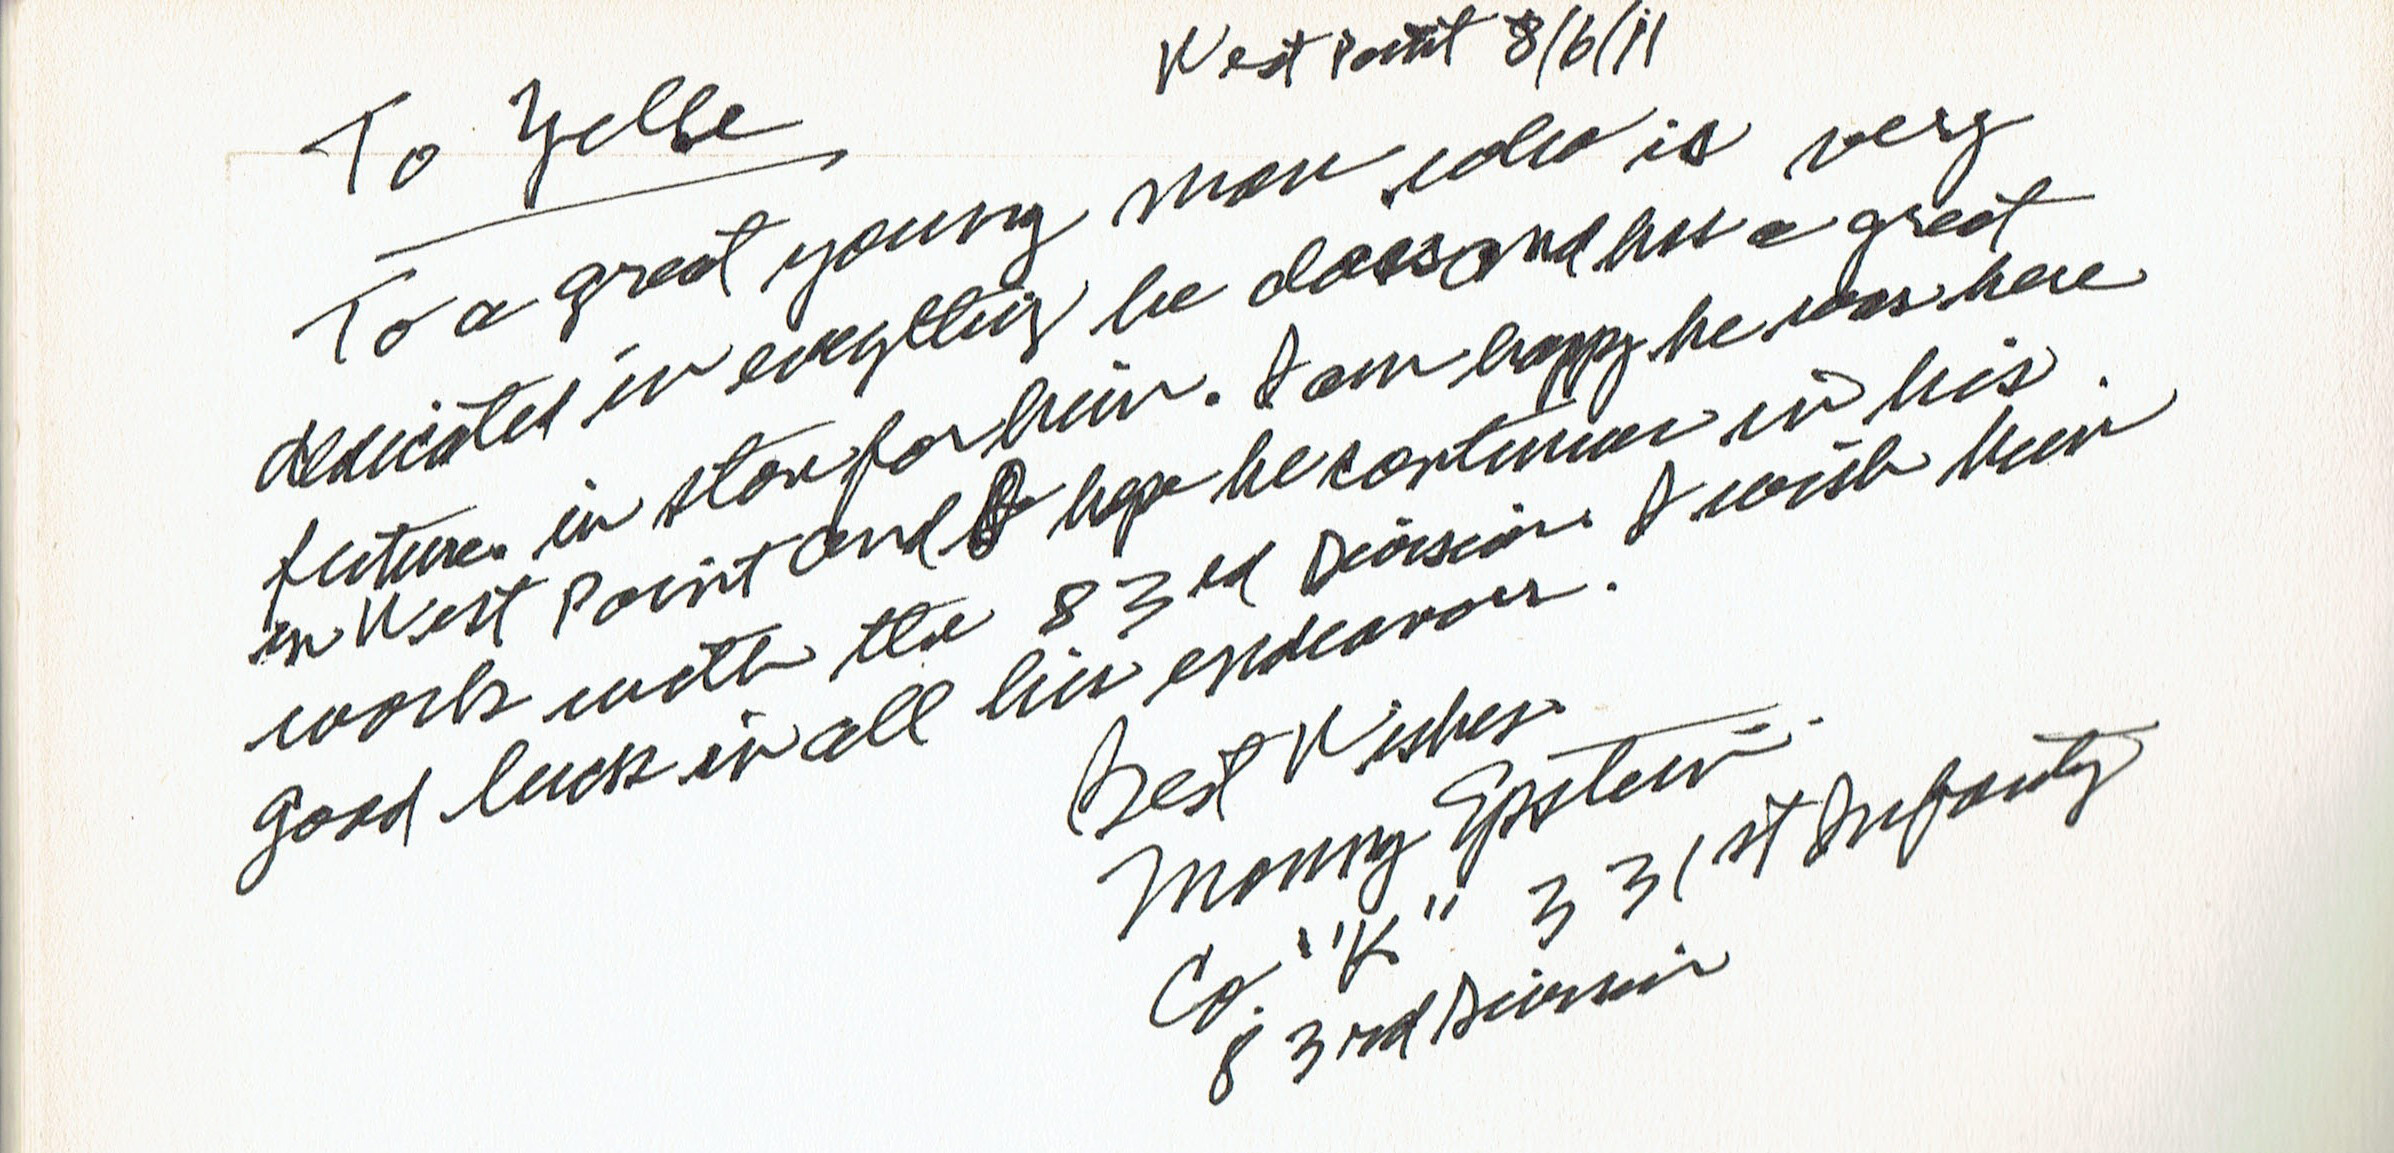 West Point 8/6/11
To Jelle
To a great young man who is very
dedicated in everything he does and has a great
future in store for him. I am happy he was here
in West Point and I hope he continues in his
work with the 83rd Division. I wish him
good luck in all his endeavors.
Best Wishes
Epstein
Co. "K" 331st Infantry
83rd Division